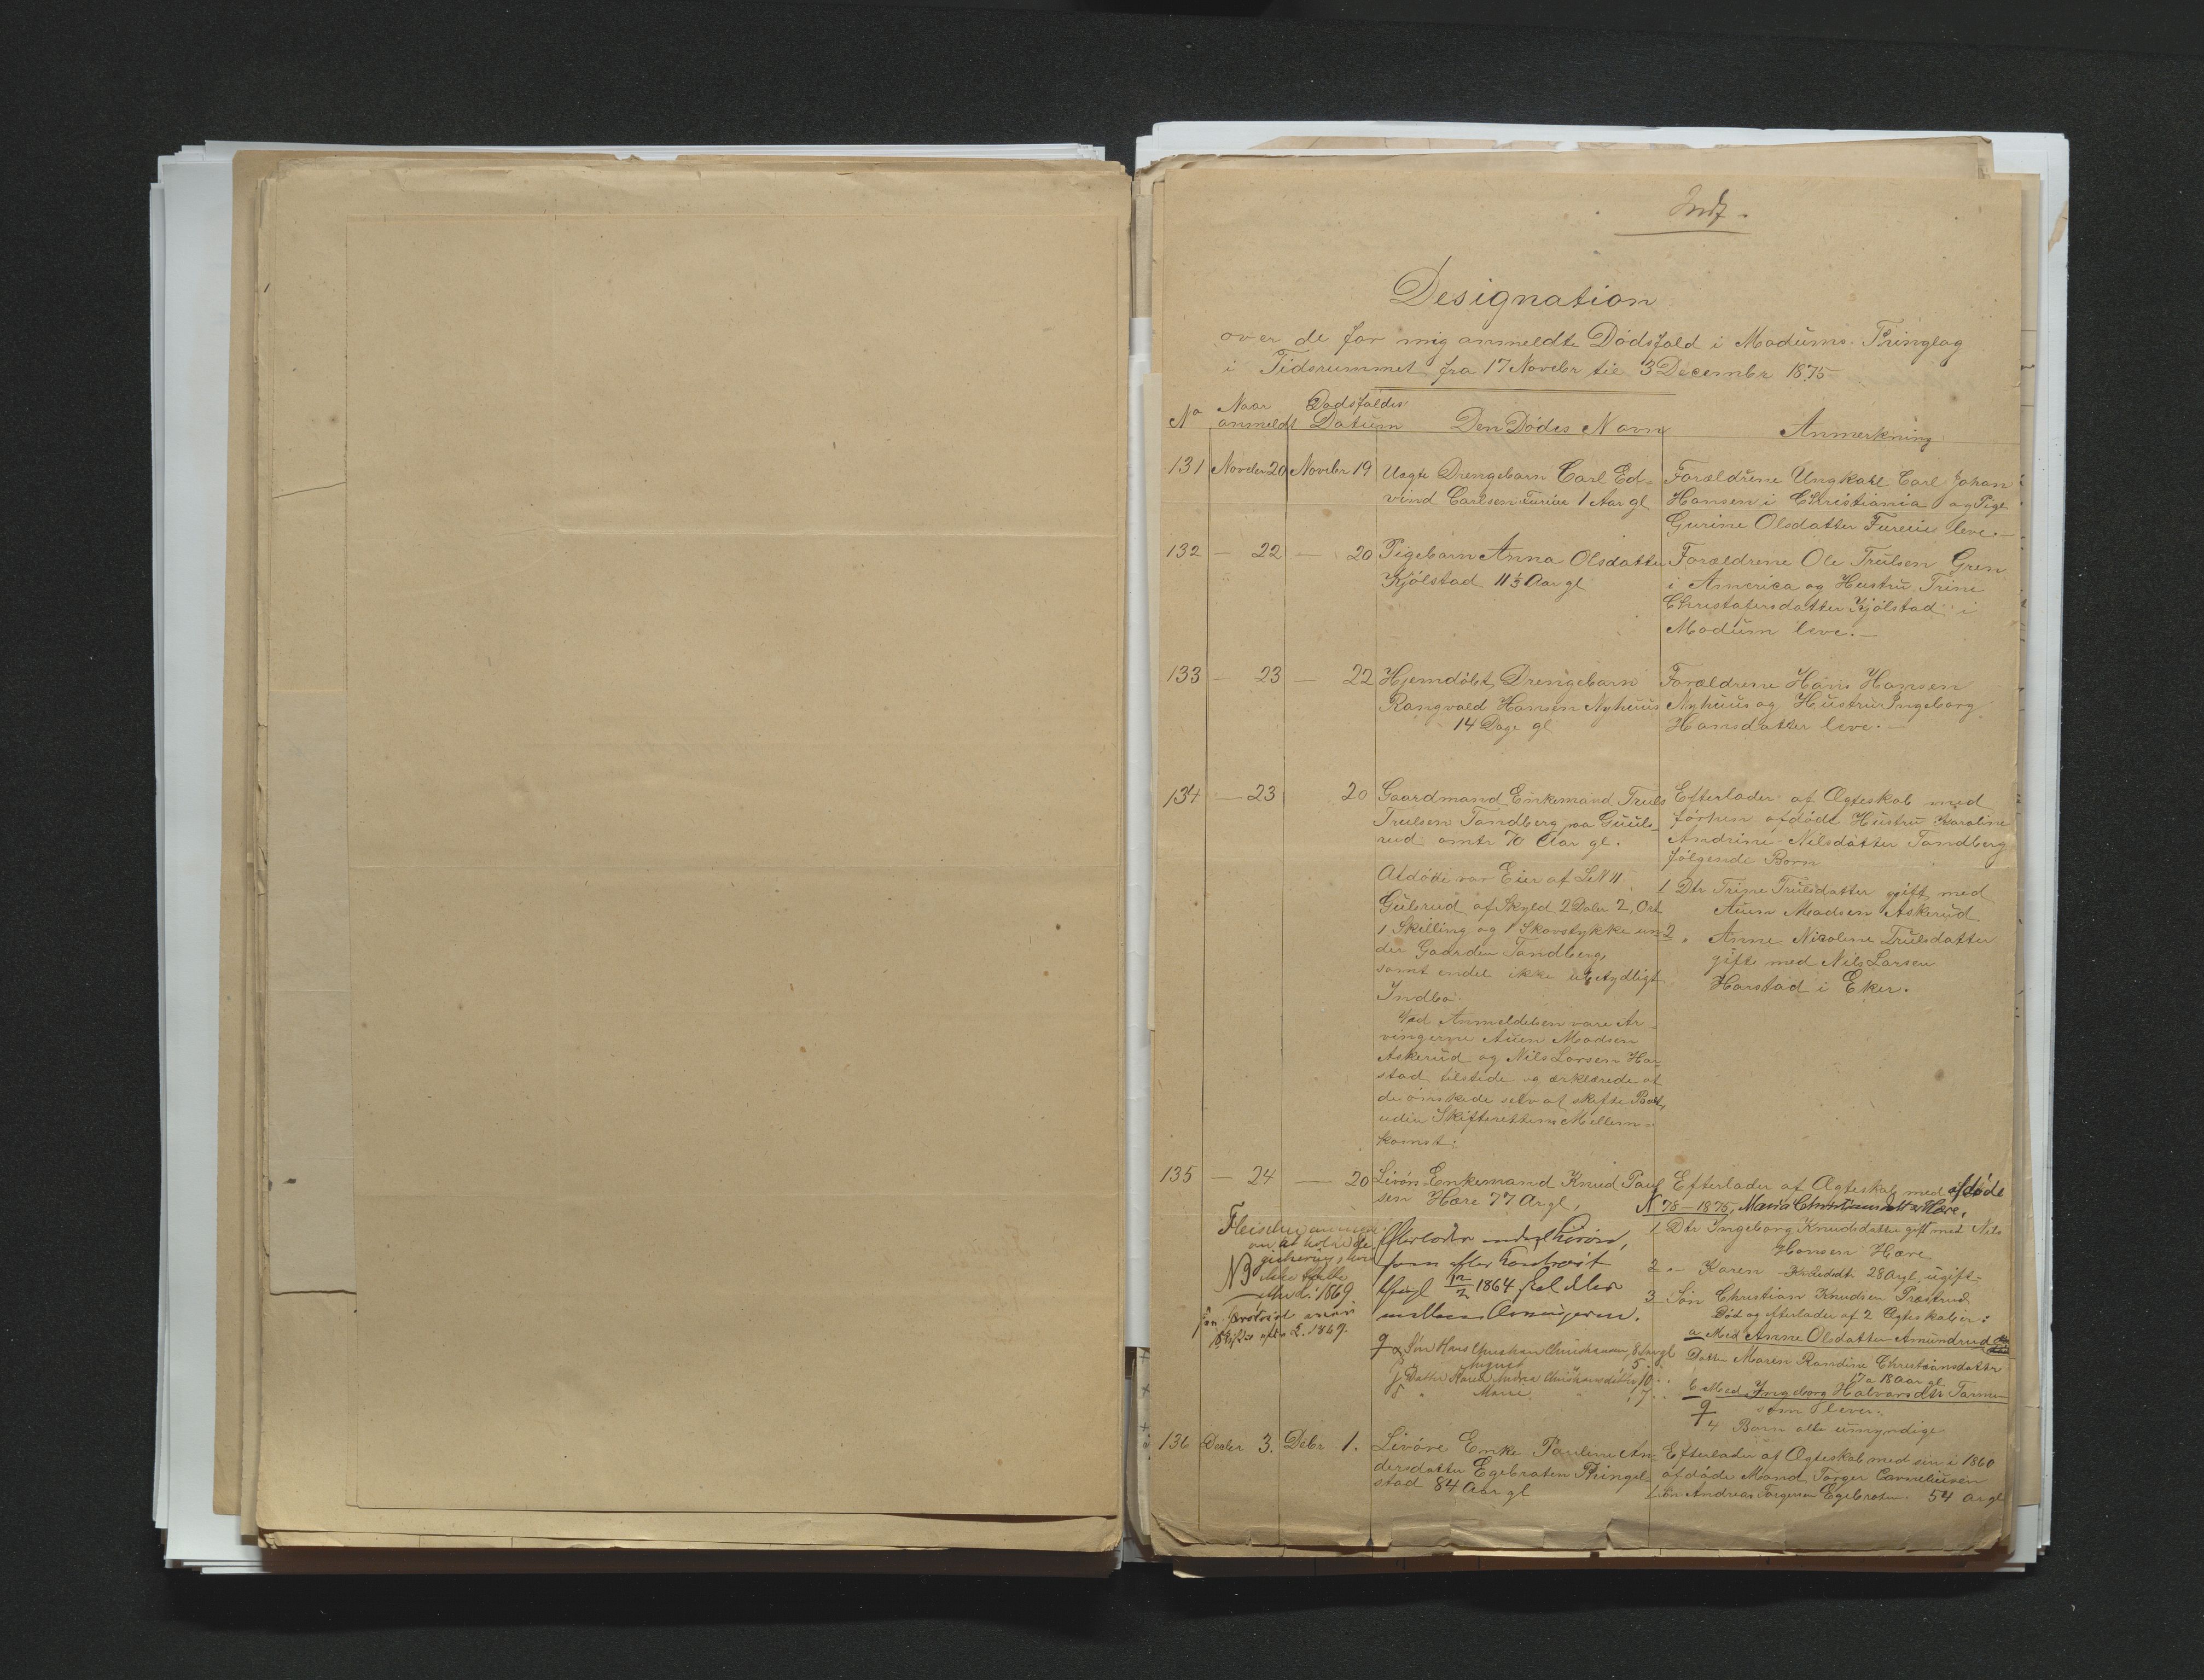 Indf.
Designation
over de for mig anmeldte Dødsfald i Modums Thinglag
i Tidsrummet fra 17 Novebr til 3 Decembr 1875
No Naar anmeldt Dødsfaldes Datum Den Dødes Navn Anmerkning
131 Novebr 20 Novebr 19
Uægte Drengebarn Carl Ed-
vind Carlsen Furuie 1 Aar gl
Forældrene Ungkarl Carl Johan
Hansen i Christiania og Pige
Gurine Olsdatter Furuie leve.—
132 — 22 — 20
Pigebarn Anna Olsdatter
Kjölstad 11½ Aar gl
Forældrene Ole Trulsen Gren
i America og Hustru Trine
Christofersdatter Kjölstad i
Modum leve.—
133 — 23 — 22
Hjemdöbt Drengebarn
Rangvald Hansen Nyhuus
14 Dage gl
Forældrene Hans Hansen
Nyhuus og Hustru Ingeborg
Hansdatter leve.—
134 — 23 20
Gaardmand Enkemand Truls
Trulsen Tandberg paa Guuls-
rud omtr 70 Aar gl.
Afdöde var Eier af LN 11
Gulsrud af Skyld 2 Daler 2 Ort
1 Skilling og 1 Skovstykke un-
der Gaarden Tandberg,
samt endel ikke ubetydligt
Indbo.
Ved Anmeldelsen vare Ar-
vingerne Auen Madsen
Askerud og Nils Larsen Har-
stad tilstede og erklærede at
de önskede selv at skifte Boet,
uden Skifterettens Mellem-
komst.
Efterlader af Ægteskab med
förhen afdöde Hustru Karoline
Andrine Nilsdatter Tandberg
fölgende Börn
1 Dtr Trine Trulsdatter gift med
Auen Madsen Askerud
2 " Anne Nicoline Trulsdatter
gift med Nils Larsen
Harstad i Eker.
135 — 24 — 20
Livörs Enkemand Knud Paul
sen Hære 77 Ar gl,
Efterlader
som efter Kontract
thingl 12/2 1864 skal deles
mellem Arvingerne.
NB
1869
1869.
Efterlader af Ægteskab med afdöde
N 78 – 1875, Maria Hære,
1 Dtr Ingeborg Knudsdatter gift med Nils
Hansen Hære
2 " Karen Knudsdtr 28 Ar gl, ugift
3 Sön Christian Knudsen Præstrud
Död og efterlader af 2 Ægteskaber:
a Med Anne Olsdatter Amundrud
Datter Maren Randine Christiansdatter
17 a 18 Aar gl
b Med Ingeborg Halvorsdtr
som lever.
4 Börn alle umyndige
Sön Hans Christian Christiansen, 8 Aar gl
August 5
Datter Karen Andrea Christiansdatter 10
Marie 7
136 Decbr 3. Debr 1.
Livöre Enke Pauline An-
dersdatter Egebraten Thingel-
stad 84 Aar gl
Efterlader af Ægteskab med sin i 1860
afdöde Mand Torger Corneliusen
1 Sön Andreas Torgersen Egebraten 54 Ar gl